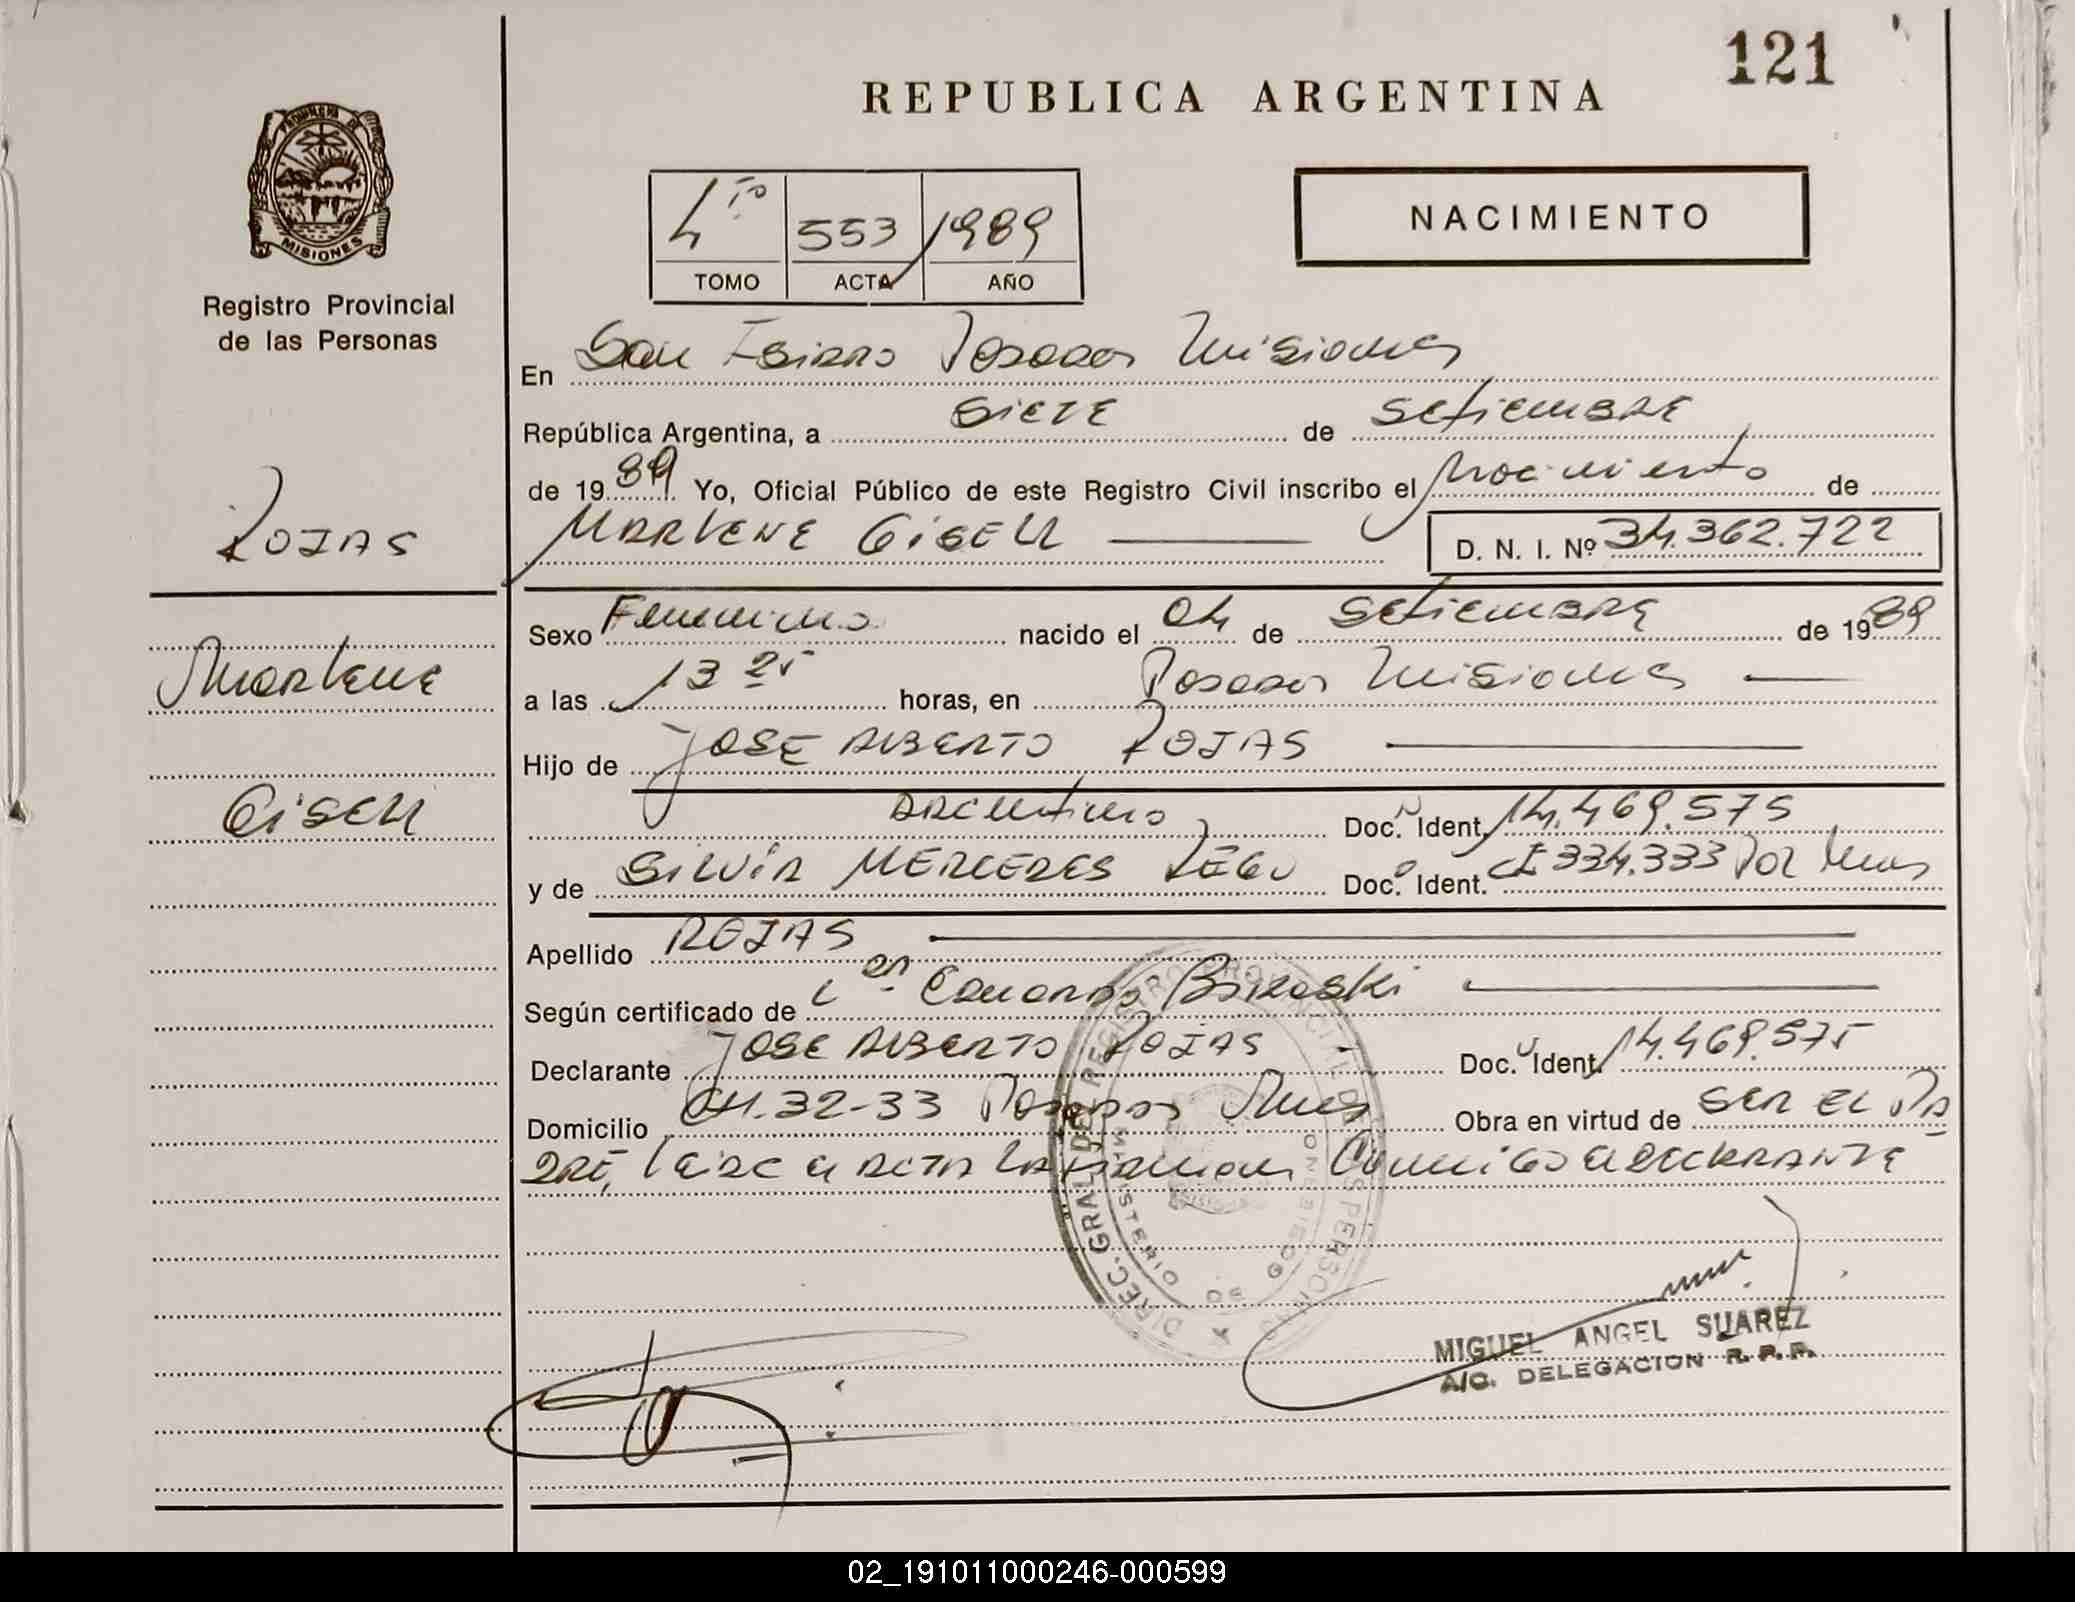 121
REPUBLICA ARGENTINA
PROVINCIA DE
MISIONES
Registro Provincial
de las Personas
4to 553 1989
TOMO ACTA AÑO
NACIMIENTO
En San Isidro Posadas Misiones
República Argentina, a siete de setiembre
de 1989 Yo, Oficial Público de este Registro Civil inscribo el Nacimiento de
ROJAS
MARLENE GISELL D. N. I. Nº 34.362.722
Sexo Femenino nacido el 04 de setiembre de 1989
Marlene
a las 13 25 horas, en Posadas Misiones
Hijo de JOSE ALBERTO ROJAS
Gisell
argentino Doc. Ident. 14.469.575
y de SILVIA MERCEDES Doc. Ident. CI 334.333 Pol Mnes
Apellido ROJAS
Según certificado de Eduardo
Declarante JOSE ALBERTO ROJAS Doc. Ident. 14.469.575
Domicilio CH. 32-33 Posadas Mnes Obra en virtud de ser el pa
dre, leida el acta la firman conmigo el declarante
DIREC. GRAL. DEL REGISTRO PROVINCIAL DE LAS PERSONAS
MINISTERIO DE GOBIERNO
MIGUEL ANGEL SUAREZ
A/C. DELEGACION R. P. P.
02_191011000246-000599